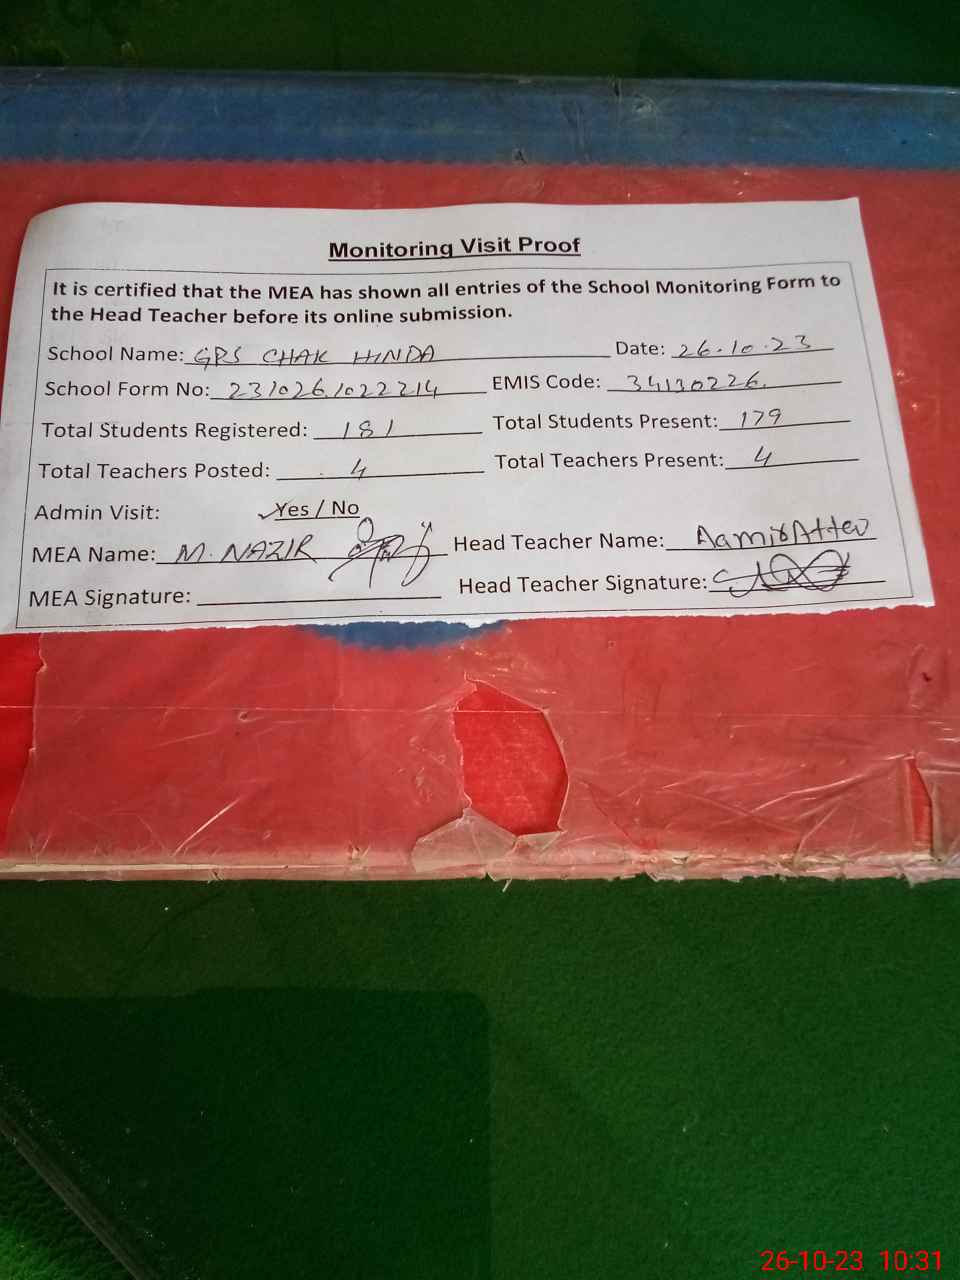 Monitoring Visit Proof
It is certified that the MEA has shown all entries of the School Monitoring Form to
the Head Teacher before its online submission.
School Name: GPS CHAK HINDA Date: 26.10.23
School Form No: 2310261022214 EMIS Code: 34130226
Total Students Registered: 181 Total Students Present: 179
Total Teachers Posted: 4 Total Teachers Present: 4
Admin Visit: ✓Yes / No
MEA Name: M. NAZIR Head Teacher Name: Aamir
MEA Signature: Head Teacher Signature:
26-10-23 10:31